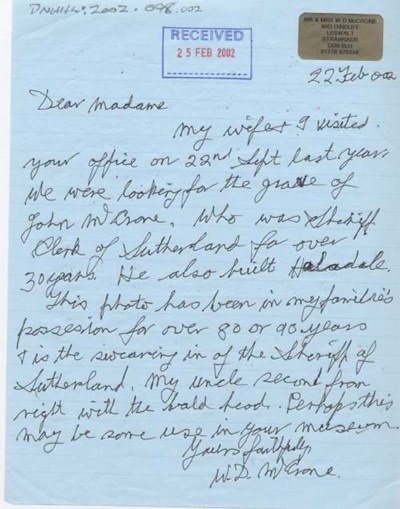 DNHHS: 2002.098.002
RECEIVED
25 FEB 2002
MR & MRS W D McCRONE
LESWALT
STRANRAER
22 Feb 002
Dear Madame
My wife & I visited
your office on 22nd Sept last year.
We were looking for the grave of
John McCrone, Who was Sheriff
Clerk of Sutherland for over
30 years. He also built Haladale.
This photo has been in my familie's
possession for over 80 or 90 years
& is the swearing in of the Sheriff of
Sutherland. My uncle second from
right with the bald head. Perhaps this
may be some use in your museum.
Yours faithfully
W.D. McCrone.